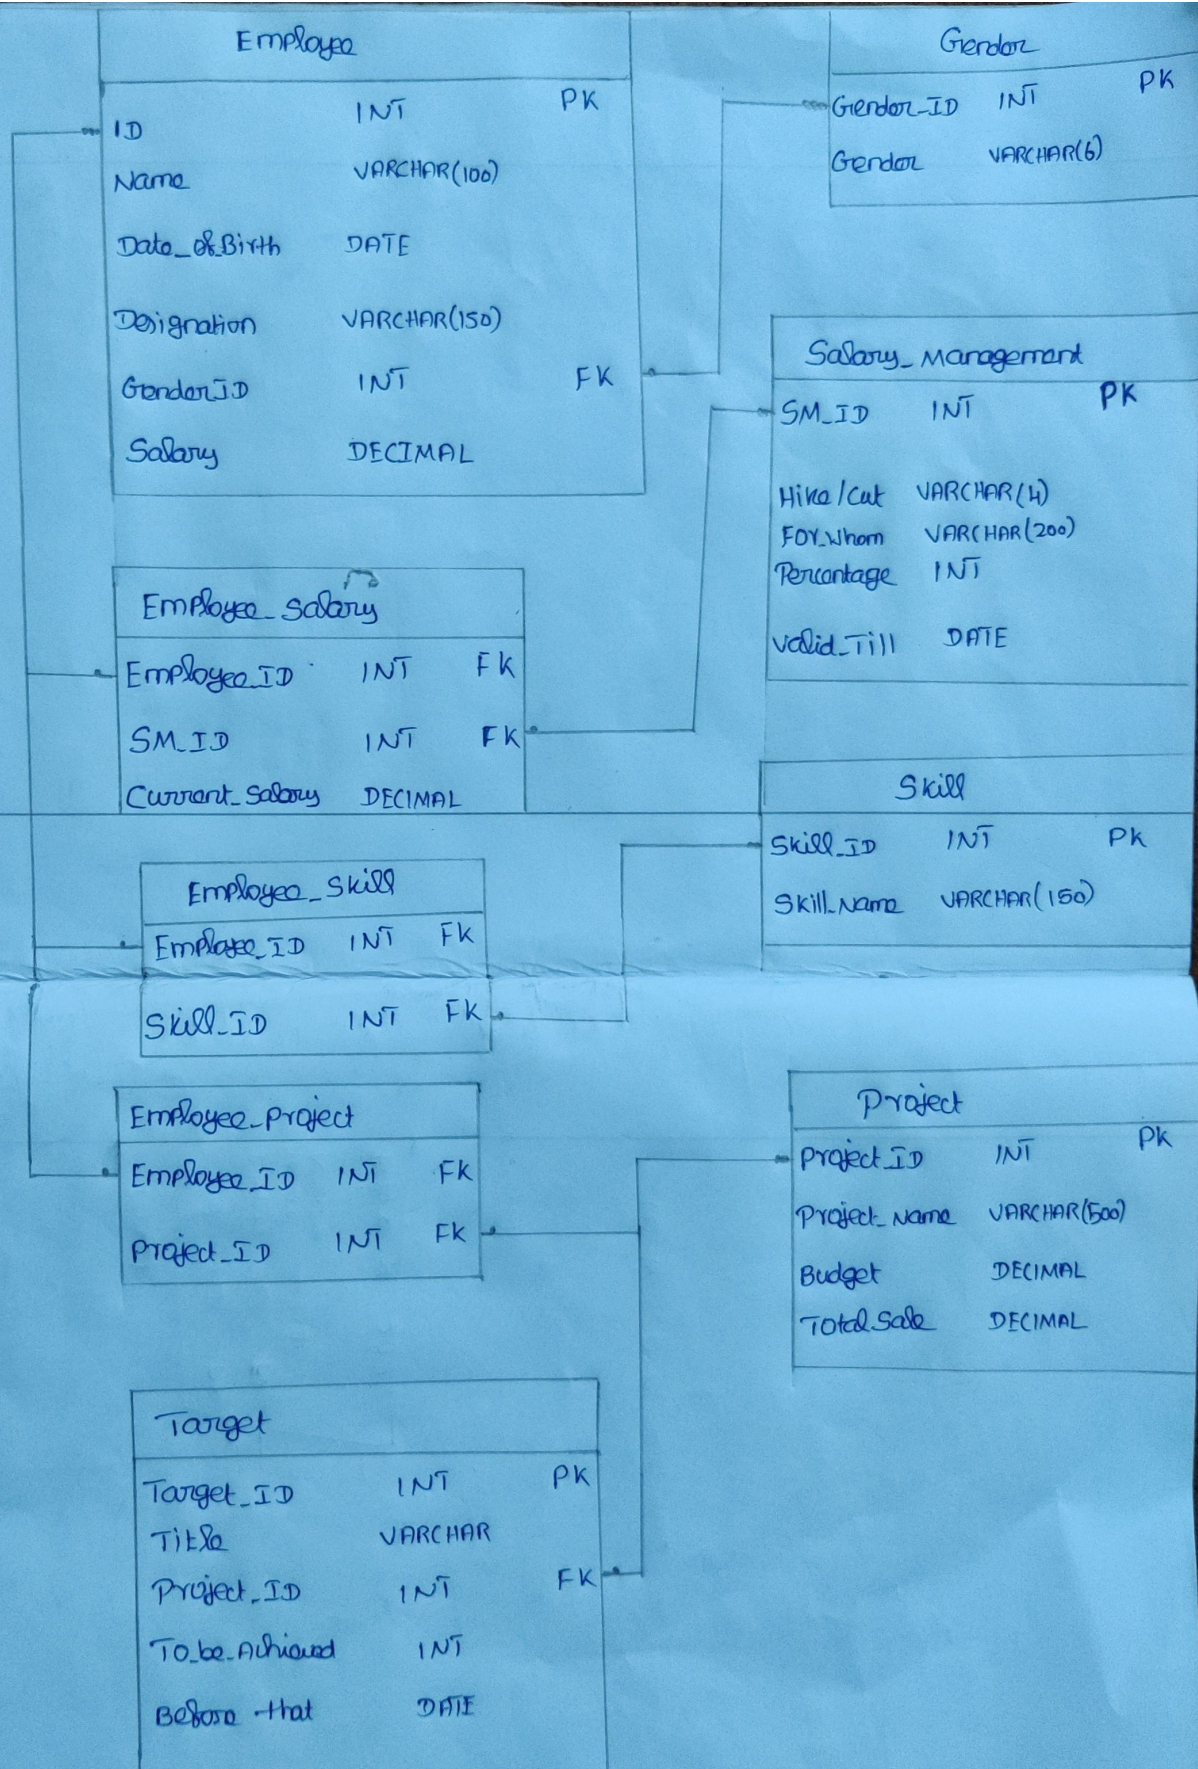 Employee
ID INT PK
Name VARCHAR(100)
Date_of_Birth DATE
Designation VARCHAR(150)
Gender_ID INT FK
Salary DECIMAL
Gender
Gender_ID INT PK
Gender VARCHAR(6)
Salary_Management
SM_ID INT PK
Hike/Cut VARCHAR(4)
For_Whom VARCHAR(200)
Percentage INT
Valid_Till DATE
Employee_Salary
Employee_ID INT FK
SM_ID INT FK
Current_Salary DECIMAL
Skill
Skill_ID INT PK
Skill_Name VARCHAR(150)
Employee_Skill
Employee_ID INT FK
Skill_ID INT FK
Employee_Project
Employee_ID INT FK
Project_ID INT FK
Project
Project_ID INT PK
Project_Name VARCHAR(500)
Budget DECIMAL
Total_Sale DECIMAL
Target
Target_ID INT PK
Title VARCHAR
Project_ID INT FK
To_be_Achieved INT
Before that DATE